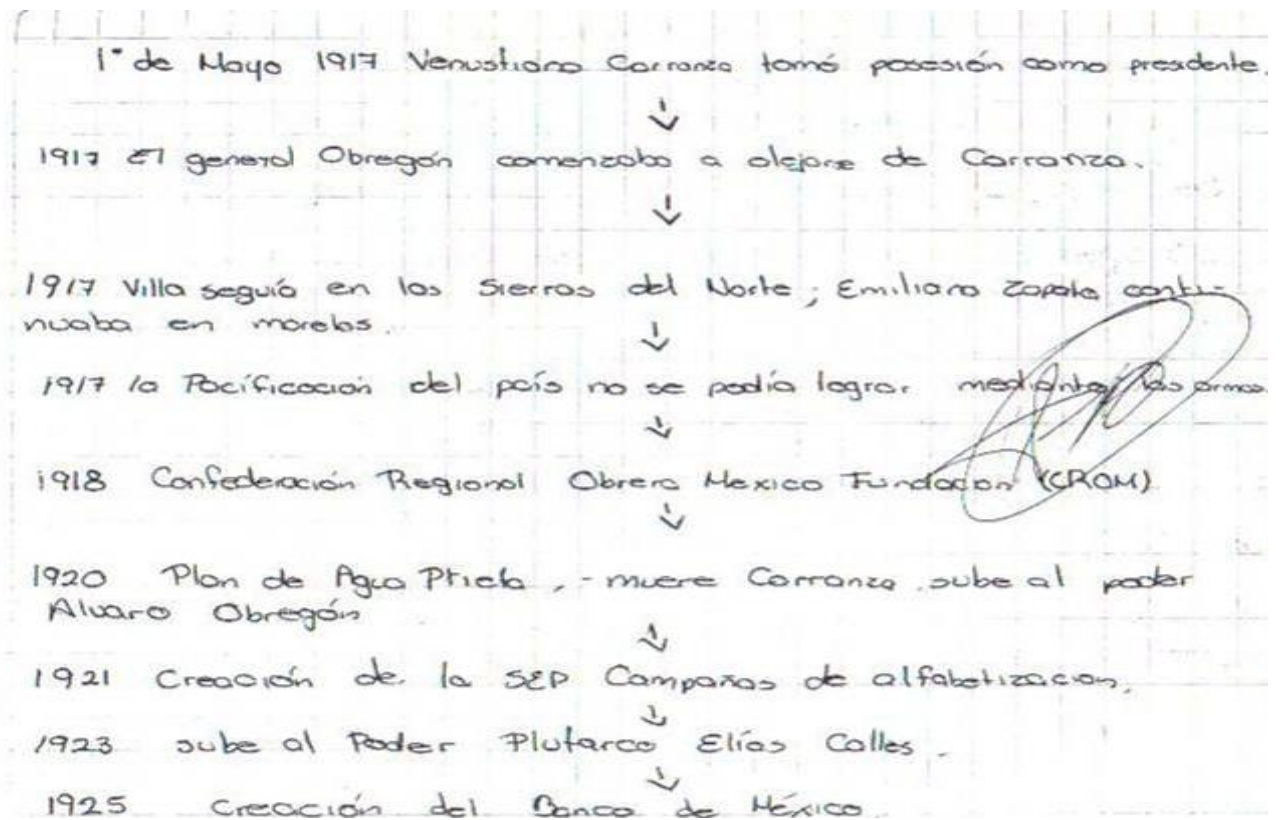 1° de Mayo 1917 Venustiano Carranza tomó posesión como presidente.
1917 El general Obregón comenzaba a alejarse de Carranza.
1917 Villa seguía en las Sierras del Norte; Emiliano Zapata conti-
nuaba en morelos.
1917 la Pacificación del país no se podía lograr mediante las armas.
1918 Confederación Regional Obrera Mexico Fundacion (CROM)
1920 Plan de Agua Prieta, - muere Carranza, sube al poder
Alvaro Obregón
1921 Creación de la SEP Campañas de alfabetizacion.
1923 sube al Poder Plutarco Elías Calles.
1925 Creación del Banco de México